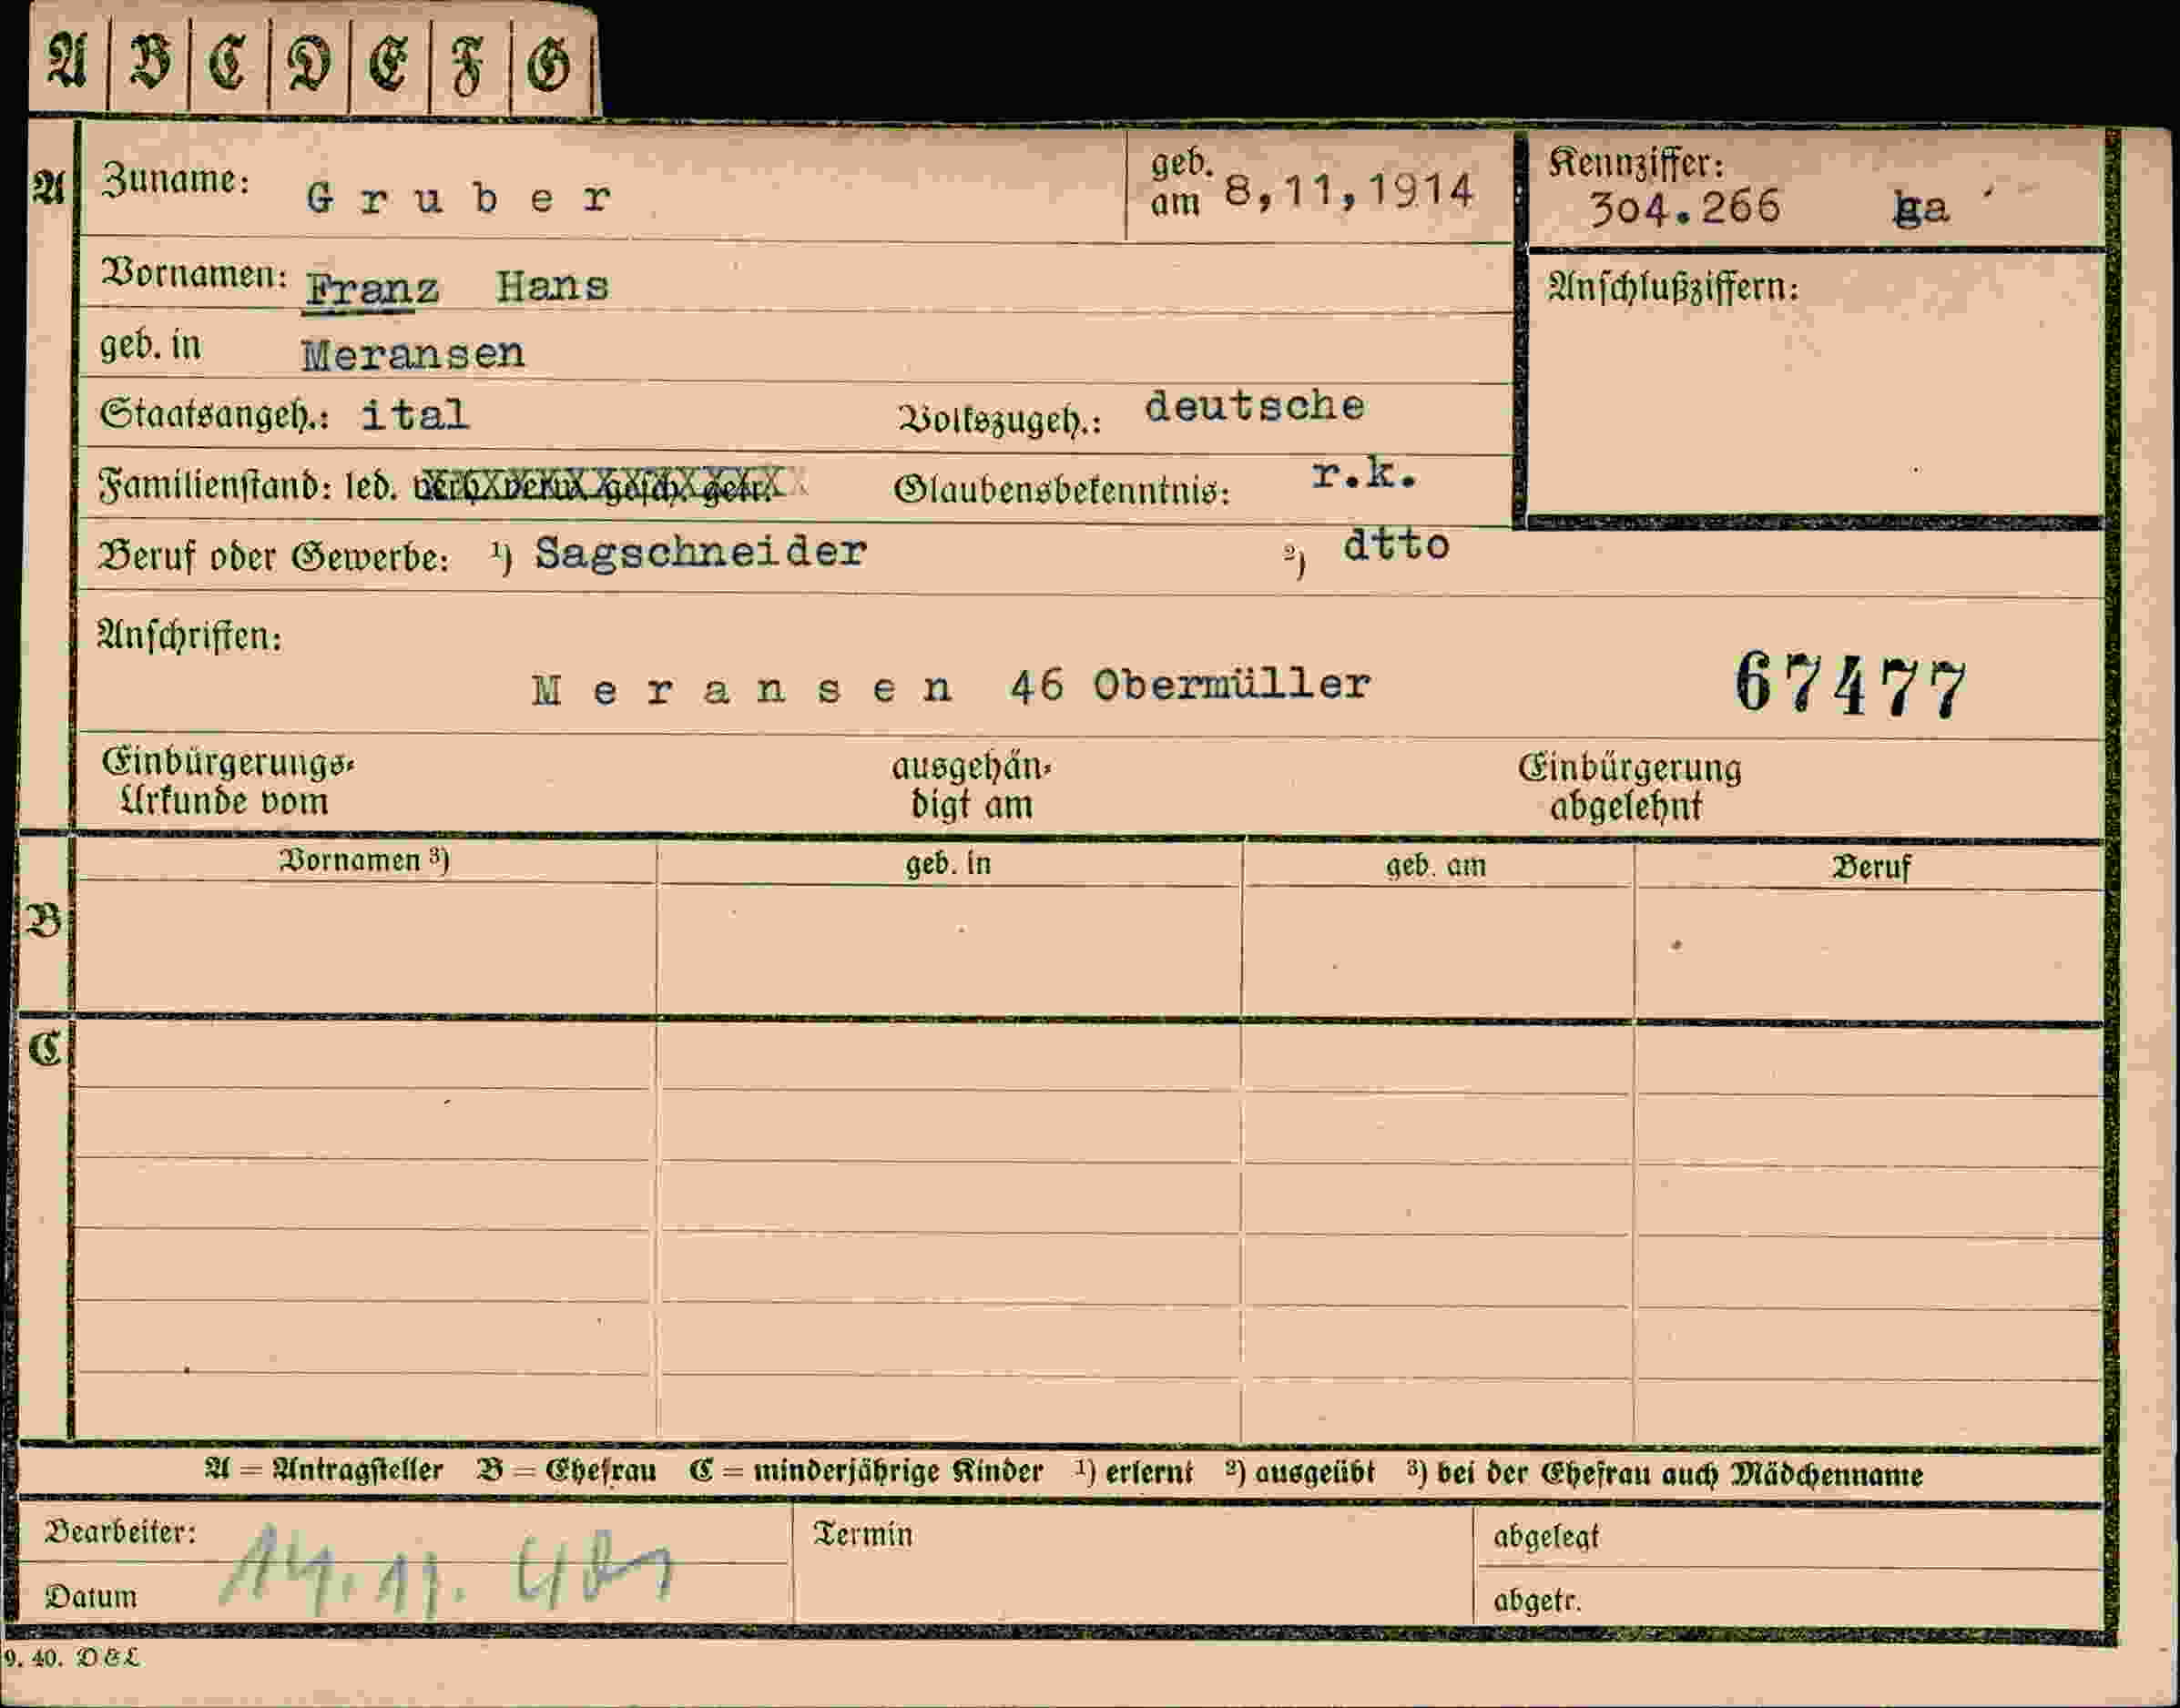 A B C D E F G
A Zuname: Gruber geb. am 8,11,1914 Kennziffer: 304.266 ga
Vornamen: Franz Hans Anschlußziffern:
geb. in Meransen
Staatsangeh.: ital Volkszugeh.: deutsche
Familienstand: led. verh. verw. gesch. getr. Glaubensbekenntnis: r.k.
Beruf oder Gewerbe: ¹) Sagschneider ²) dtto
Anschriften:
Meransen 46 Obermüller 67477
Einbürgerungs- ausgehän- Einbürgerung
Urkunde vom digt am abgelehnt
Vornamen ³) geb. in geb. am Beruf
B
C
A = Antragsteller B = Ehefrau C = minderjährige Kinder ¹) erlernt ²) ausgeübt ³) bei der Ehefrau auch Mädchenname
Bearbeiter: Termin abgelegt
Datum 14.11. abgetr.
9. 40. D&L